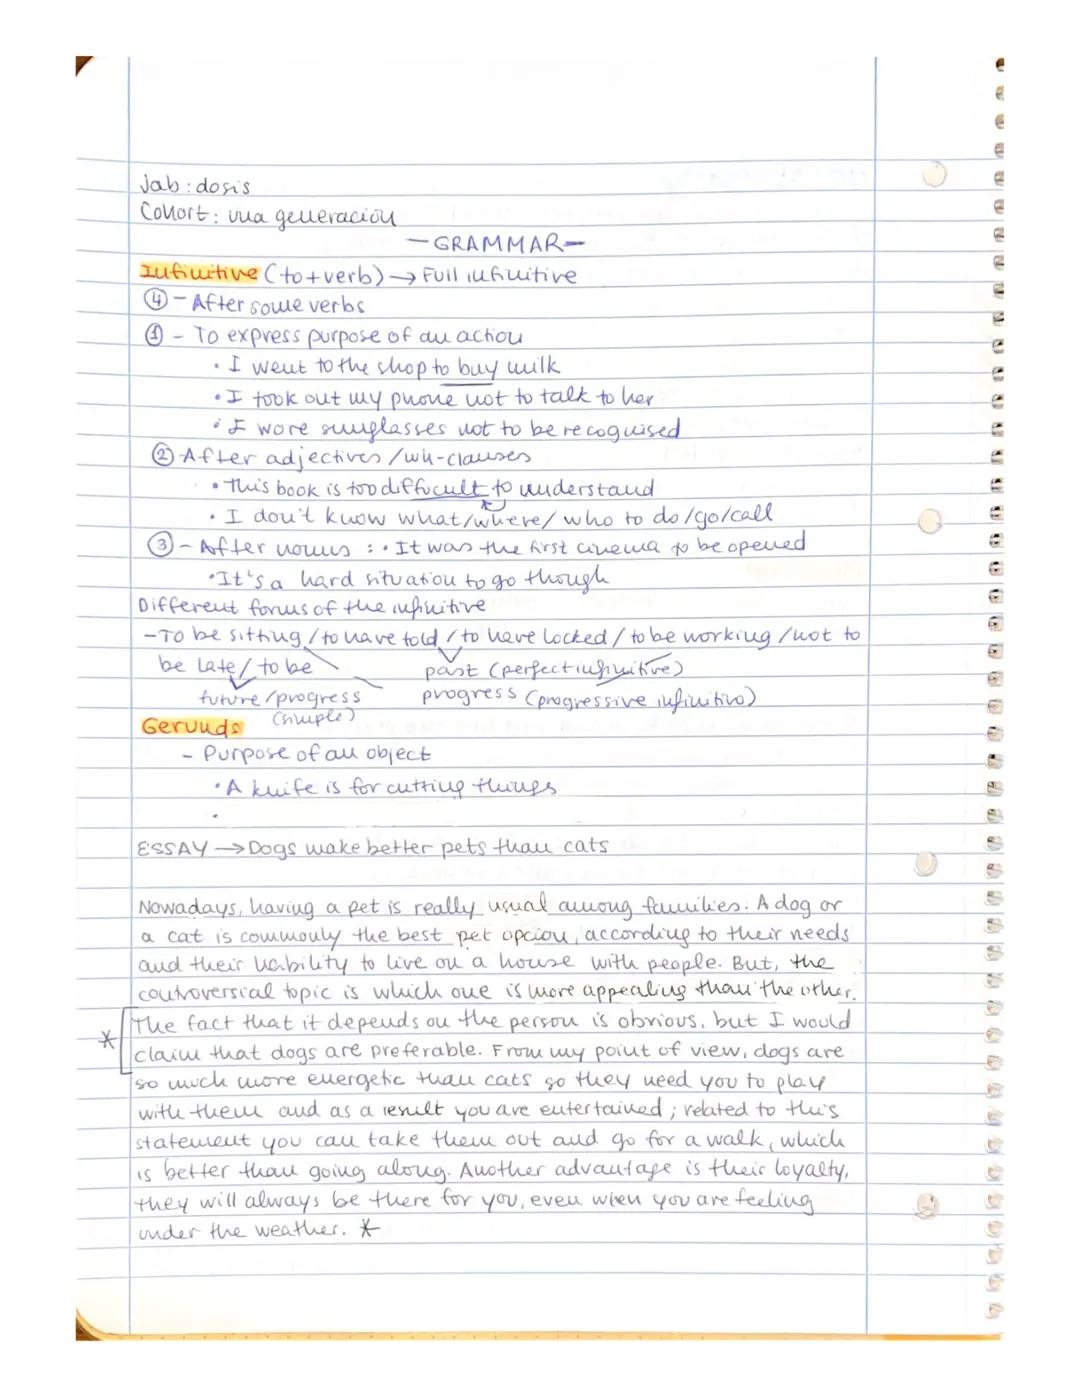 Jab: dosis
Cohort: una generación
— GRAMMAR —
Infinitive (to+verb) → Full infinitive
④ - After some verbs
① - To express purpose of an action
• I went to the shop to buy milk
• I took out my phone not to talk to her
• I wore sunglasses not to be recognised
② - After adjectives / wh-clauses
• This book is too difficult to understand
• I don't know what/where/ who to do/go/call
③ - After nouns : • It was the first cinema to be opened
• It's a hard situation to go though
Different forms of the infinitive
- To be sitting / to have told / to have locked / to be working / not to
be late / to be
past (perfect infinitive)
future / progress
progress (progressive infinitivo)
(simple)
Gerunds
- Purpose of an object
• A knife is for cutting things
•
ESSAY → Dogs make better pets than cats
Nowadays, having a pet is really usual among families. A dog or
a cat is commonly the best pet opcion, according to their needs
and their hability to live on a house with people. But, the
controversial topic is which one is more appealing than the other.
* [The fact that it depends on the person is obvious, but I would
claim that dogs are preferable. From my point of view, dogs are
so much more energetic than cats so they need you to play
with them and as a result you are entertained; related to this
statement you can take them out and go for a walk, which
is better than going along. Another advantage is their loyalty,
they will always be there for you, even when you are feeling
under the weather. *